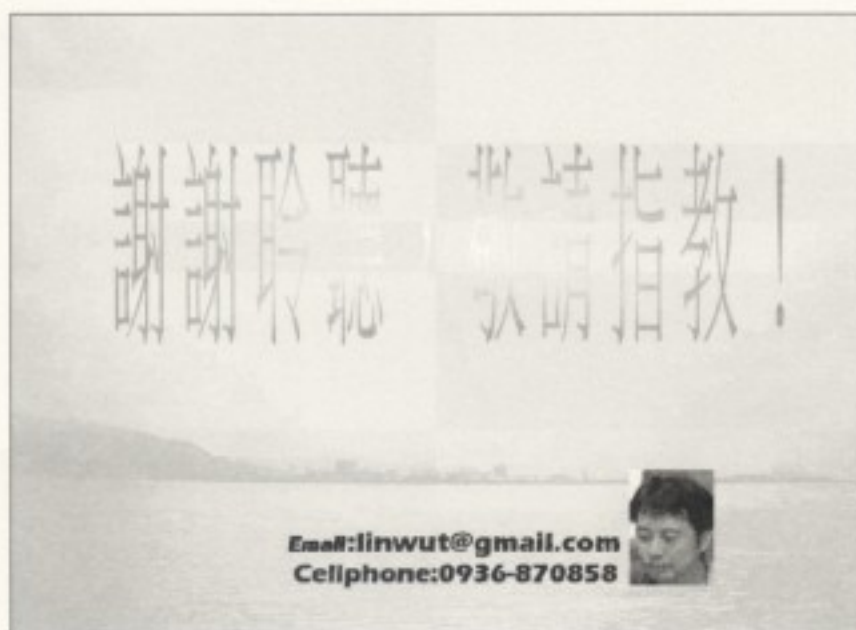 謝謝聆聽 敬請指教！
Email:linwut@gmail.com
Cellphone:0936-870858